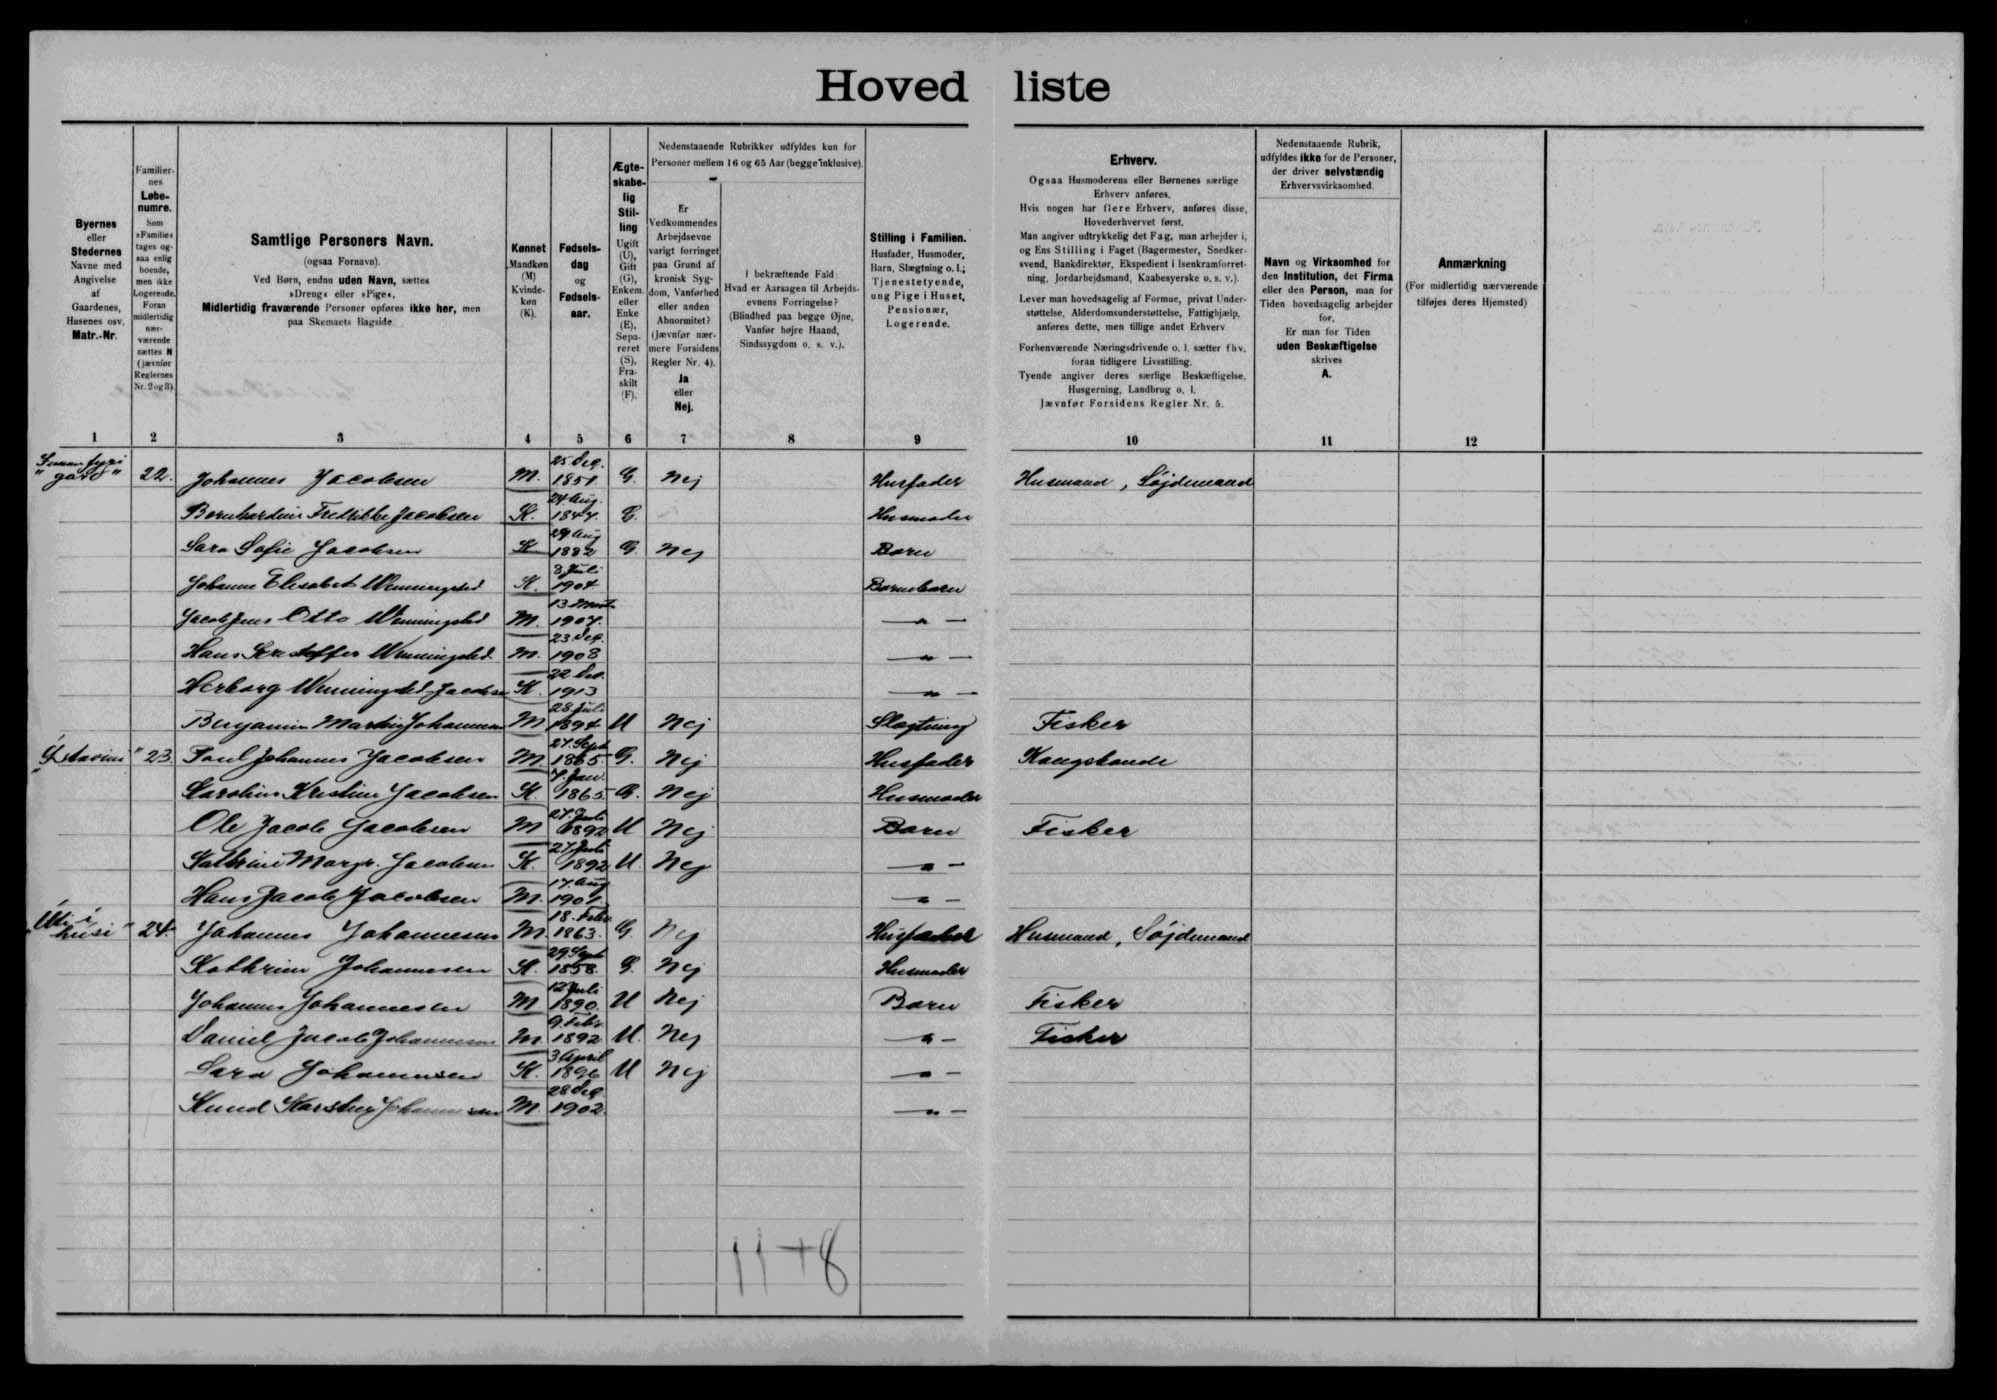 Hovedliste
Byernes
eller
Stedernes
Navne med
Angivelse
af
Gaardenes,
Husenes osv.
Matr.-Nr.
Familier-
nes
Løbe-
numre.
Som
»Familie«
tages og-
saa enlig
boende,
men ikke
Logerende.
Foran
midlertidig
nær-
værende
sættes N
(jævnfør
Reglernes
Nr. 2 og 3).
Samtlige Personers Navn.
(ogsaa Fornavn).
Ved Børn, endnu uden Navn, sættes
»Dreng« eller »Pige«.
Midlertidig fraværende Personer opføres ikke her, men
paa Skemaets Bagside.
Kønnet
Mandkøn
(M)
Kvinde-
køn
(K).
Fødsels-
dag
og
Fødsels-
aar.
Ægte-
skabe-
lig
Stil-
ling
Ugift
(U),
Gift
(G),
Enkem.
eller
Enke
(E),
Sepa-
reret
(S),
Fra-
skilt
(F).
Nedenstaaende Rubrikker udfyldes kun for
Personer mellem 16 og 65 Aar (begge inklusive).
Er
Vedkommendes
Arbejdsevne
varigt forringet
paa Grund af
kronisk Syg-
dom, Vanførhed
eller anden
Abnormitet?
(Jævnfør nær-
mere Forsidens
Regler Nr. 4).
Ja
eller
Nej.
I bekræftende Fald:
Hvad er Aarsagen til Arbejds-
evnens Forringelse?
(Blindhed paa begge Øjne,
Vanfør højre Haand,
Sindssygdom o. s. v.).
Stilling i Familien.
Husfader, Husmoder,
Barn, Slægtning o. l.;
Tjenestetyende,
ung Pige i Huset,
Pensionær,
Logerende.
Erhverv.
Ogsaa Husmoderens eller Børnenes særlige
Erhverv anføres.
Hvis nogen har flere Erhverv, anføres disse,
Hovederhvervet først.
Man angiver udtrykkelig det Fag, man arbejder i,
og Ens Stilling i Faget (Bagermester, Snedker-
svend, Bankdirektør, Ekspedient i Isenkramforret-
ning, Jordarbejdsmand, Kaabesyerske o. s. v.).
Lever man hovedsagelig af Formue, privat Under-
støttelse, Alderdomsunderstøttelse, Fattighjælp,
anføres dette, men tillige andet Erhverv.
Forhenværende Næringsdrivende o. l. sætter fhv.
foran tidligere Livsstilling.
Tyende angiver deres særlige Beskæftigelse,
Husgerning, Landbrug o. l.
Jævnfør Forsidens Regler Nr. 5.
Nedenstaaende Rubrik,
udfyldes ikke for de Personer,
der driver selvstændig
Erhvervsvirksomhed.
Navn og Virksomhed for
den Institution, det Firma
eller den Person, man for
Tiden hovedsagelig arbejder
for.
Er man for Tiden
uden Beskæftigelse
skrives
A.
Anmærkning
(For midlertidig nærværende
tilføjes deres Hjemsted)
1 2 3 4 5 6 7 8 9 10 11 12
22. Johannes Jacobsen M. 25 Dec. 1851 G. Nej Husfader Husmand, Sløjdmand
Fredrikke Jacobsen K. 24 Aug. 1847. Husmoder
Sara Sofie Jacobsen K 29 Aug 1882 G. Nej Barn
Johanne Elisabet Wenningsted K. 3 Juli 1904 Barnebarn
Jacob Jens Otto Wenningsted M. 1907. — " —
Hans Wenningsted M. 1908 — " —
Herborg Wenningsted Jacobsen K. 1913 — " —
Benjamin Martin Johannesen M 28. Juli 1894 U Nej Slægtning Fisker
23. Poul Johannes Jacobsen M. 27. Sept 1865 G. Nej Husfader Kongsbonde
Karoline Kristine Jacobsen K. 7. Jan. 1865 G. Nej Husmoder
Ole Jacob Jacobsen M 1892 U Nej Barn Fisker
Kathrine Margr. Jacobsen K. 1892 U. Nej — " —
Hans Jacob Jacobsen M. 17. Aug 1901. — " —
24. Johannes Johannesen M. 18. Febr. 1863. G. Nej Husfader Husmand, Sløjdmand
Kathrine Johannesen K. 29. Sept 1858. G. Nej Husmoder
Johannes Johannesen M 12 Juli 1890. U Nej Barn Fisker
Daniel Jacob Johannesen M. 9. Febr. 1892 U. Nej — " — Fisker
Sara Johannesen K. 3 April 1896 U Nej — " —
Knud Johannesen M. 28 Dec. 1902. — " —
11+8